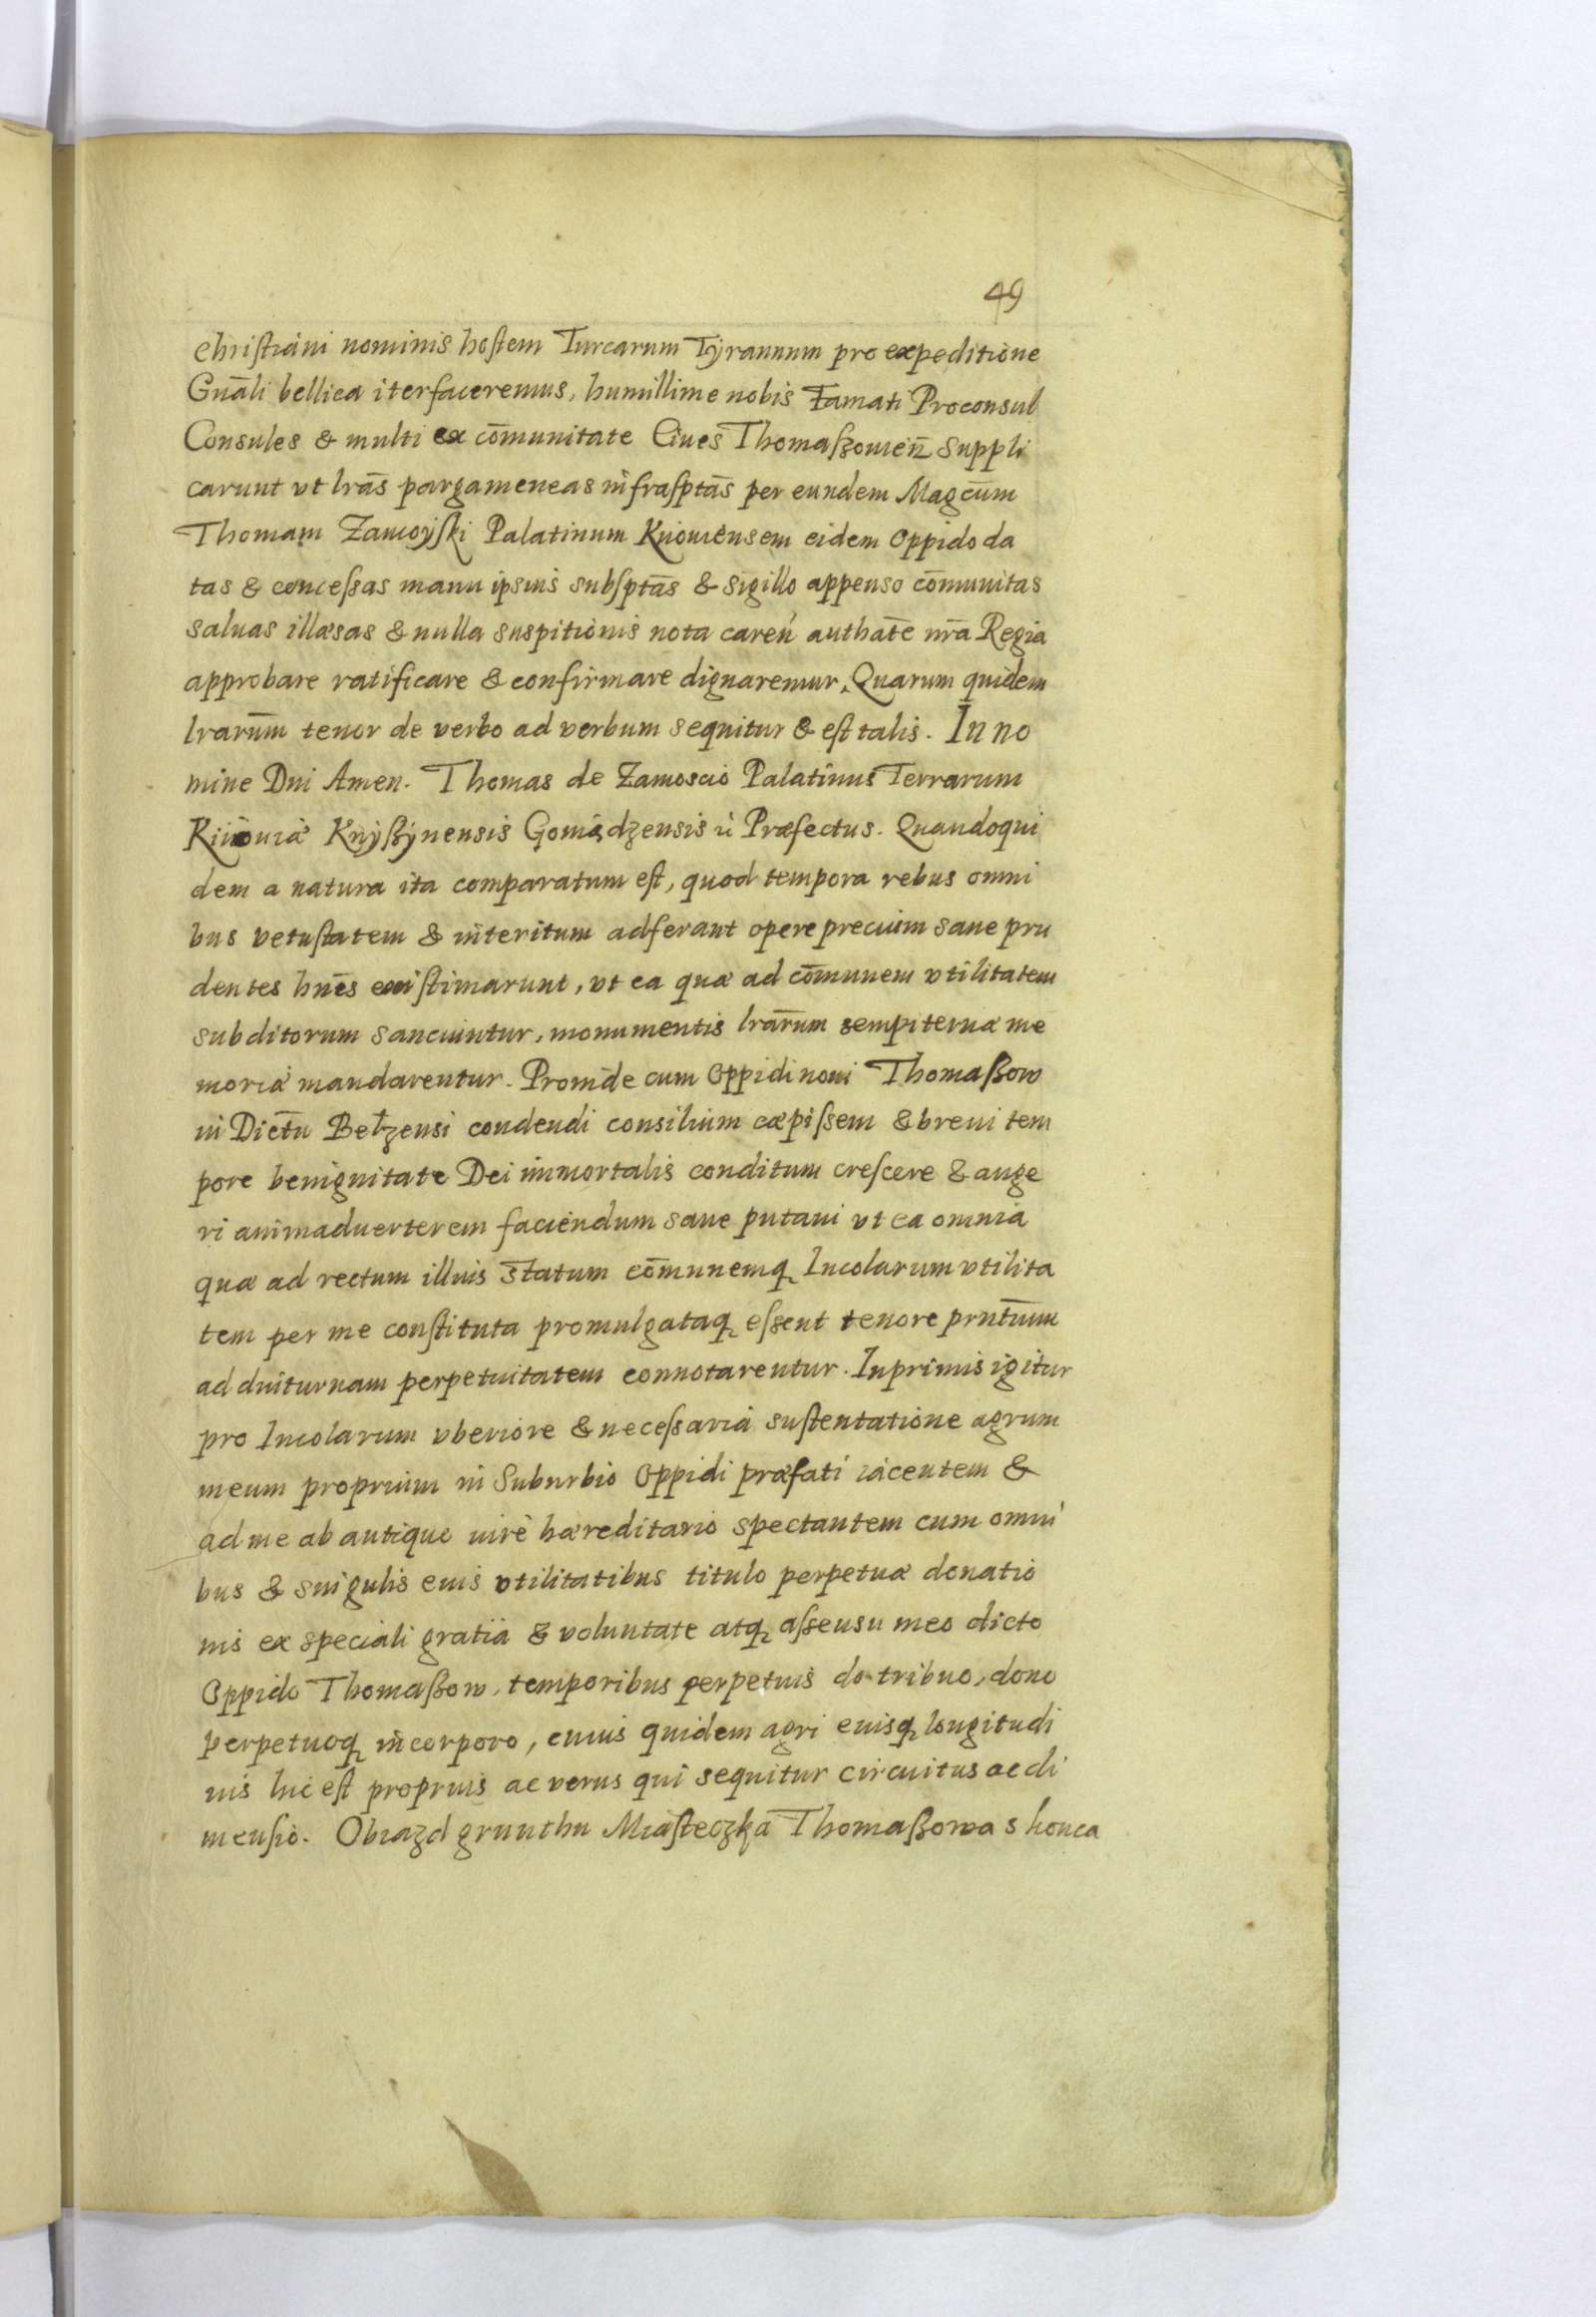 49
Christiani nominis hostem Turcarum Tyrannum pro expeditione
Gnāli bellica iter faceremus, humillime nobis Famati Proconsul
Consules & multi ex cōmunitate Ciues Thomaßowien̄ suppli
carunt vt lrās pargameneas infrasptās per eundem Magcūm
Thomam Zamoyski Palatinum Kijouiensem eidem Oppido da
tas & concessas manu ipsius subsptās & sigillo appenso cōmunitas
saluas illæsas & nulla suspitionis nota caren̄ authāte nrā Regia
approbare ratificare & confirmare dignaremur. Quarum quidem
lrarūm tenor de verbo ad verbum sequitur & est talis. In no
mine Dni Amen. Thomas de Zamoscio Palatinus Terrarum
Kiiouiæ Knyßynensis Goniądzensis Præfectus. Quandoqui
dem a natura ita comparatum est, quod tempora rebus omni
bus vetustatem & interitum adferant opere precium sane pru
dentes hnēs existimarunt, vt ea quæ ad cōmunem vtilitatem
subditorum sanciuntur, monumentis lrarūm sempiternæ me
moriæ mandarentur. Proinde cum Oppidi noui Thomaßow
in Dictū Bełzensi condendi consilium cæpissem & breui tem
pore benignitate Dei immortalis conditum crescere & auge
ri animaduerterem faciendum sane putaui vt ea omnia
quæ ad rectum illius statum cōmunemq Incolarum vtilita
tem per me constituta promulgataq essent tenore prntīum
ad diuturnam perpetuitatem connotarentur. Inprimis igitur
pro Incolarum vberiore & necessaria sustentatione agrum
meum proprium in Suburbio Oppidi præfati iacentem &
ad me ab antiquo iure hæreditario spectantem cum omni
bus & singulis eius vtilitatibus titulo perpetuæ donatio
nis ex speciali gratia & voluntate atq assensu meo dicto
Oppido Thomaßow, temporibus perpetuis do tribuo, dono
perpetuoq incorporo, cuius quidem agri eiusq longitudi
nis hic est proprius ac verus qui sequitur circuitus ac di
mensio. Obiazd grunthu Miasteczka Thomaßowa s konca